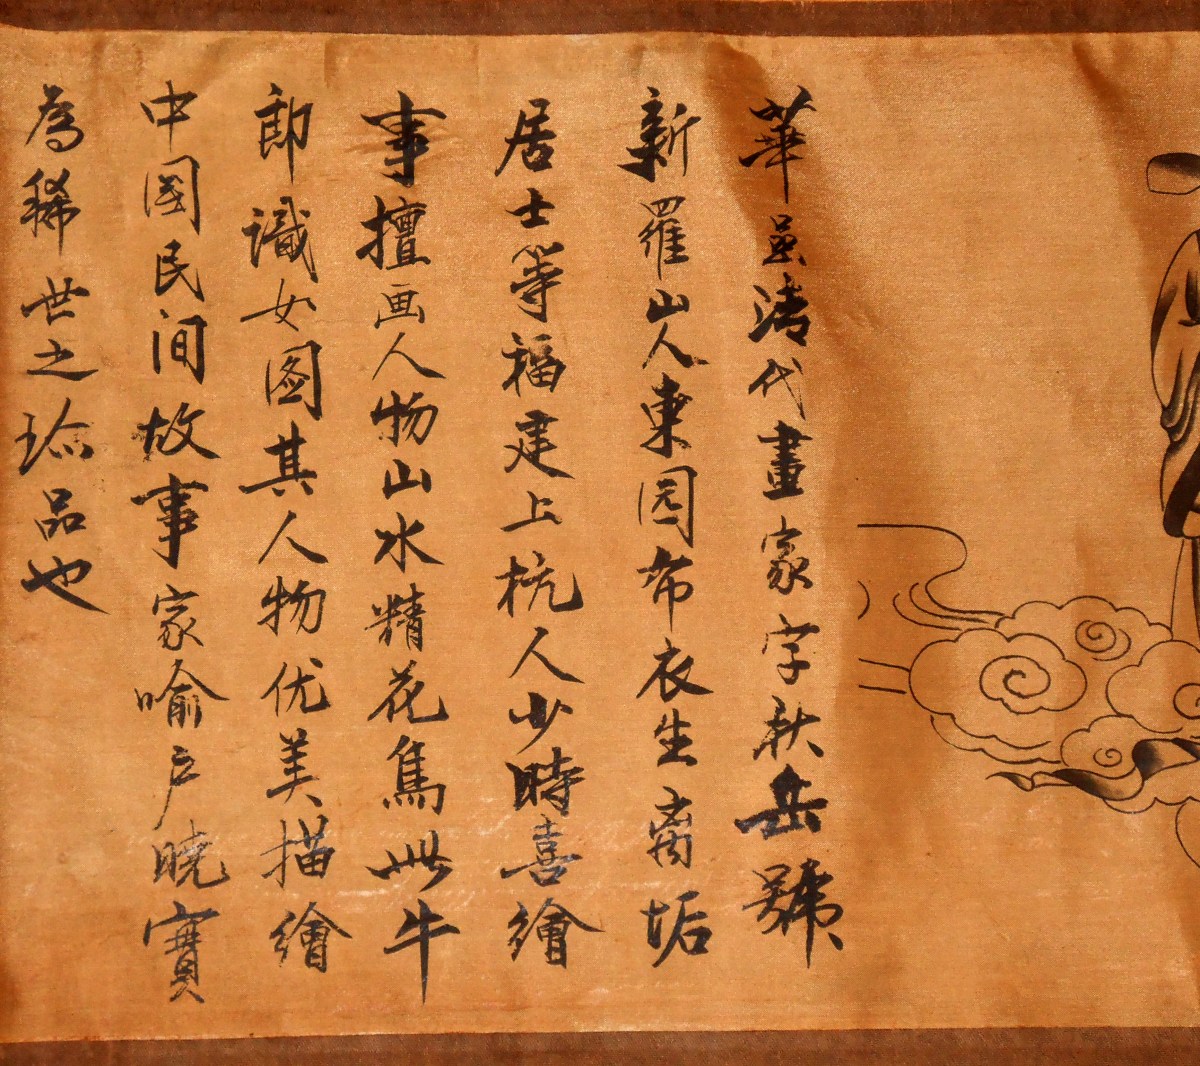 華喦清代畫家字秋岳號
新羅山人東园布衣生离垢
居士等福建上杭人少時喜繪
事擅画人物山水精花鳥此牛
郎識女图其人物优美描繪
中国民间故事家喻户曉實
為稀世之珎品也